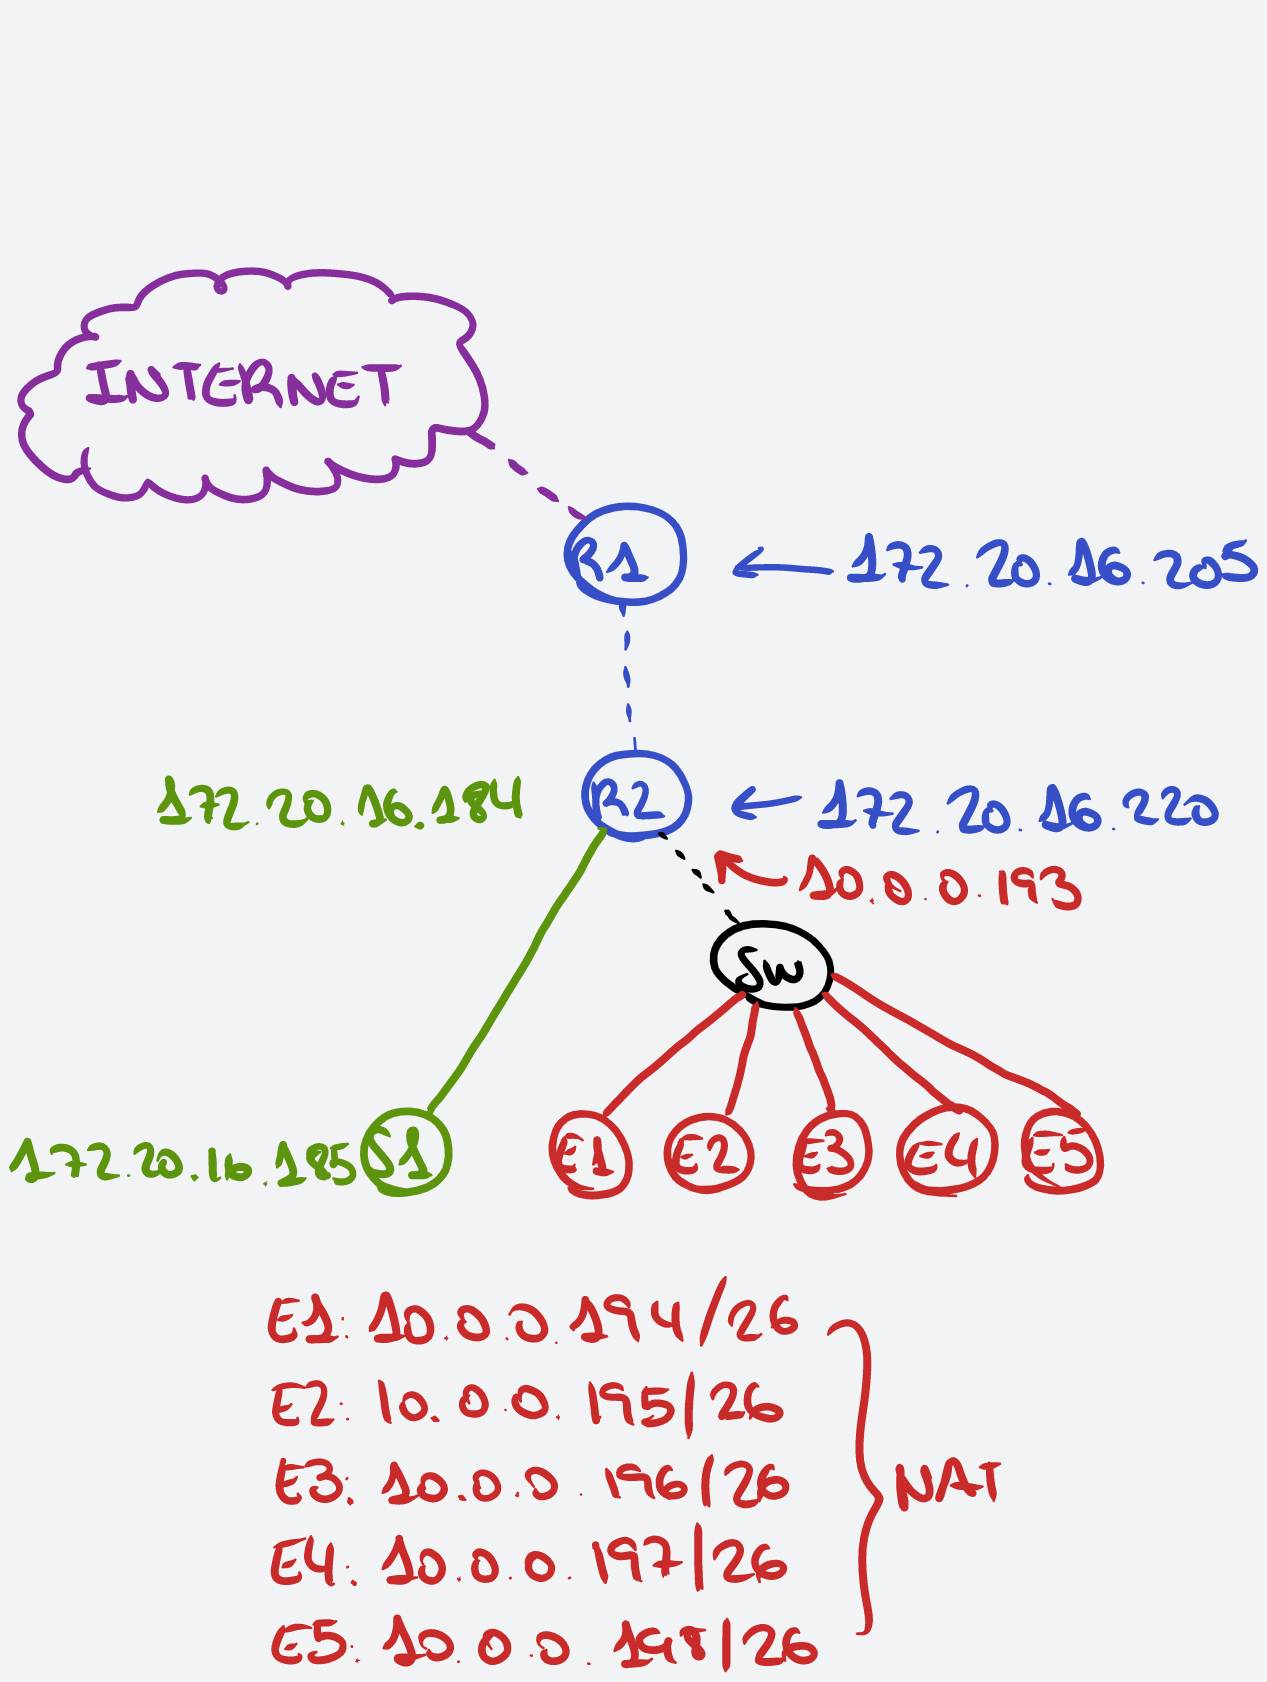 INTERNET
R1 ← 172.20.16.205
172.20.16.184 R2 ← 172.20.16.220
10.0.0.193
SW
172.20.16.185 S1 E1 E2 E3 E4 E5
E1: 10.0.0.194/26
E2: 10.0.0.195/26
E3: 10.0.0.196/26
NAT
E4: 10.0.0.197/26
E5: 10.0.0.198/26